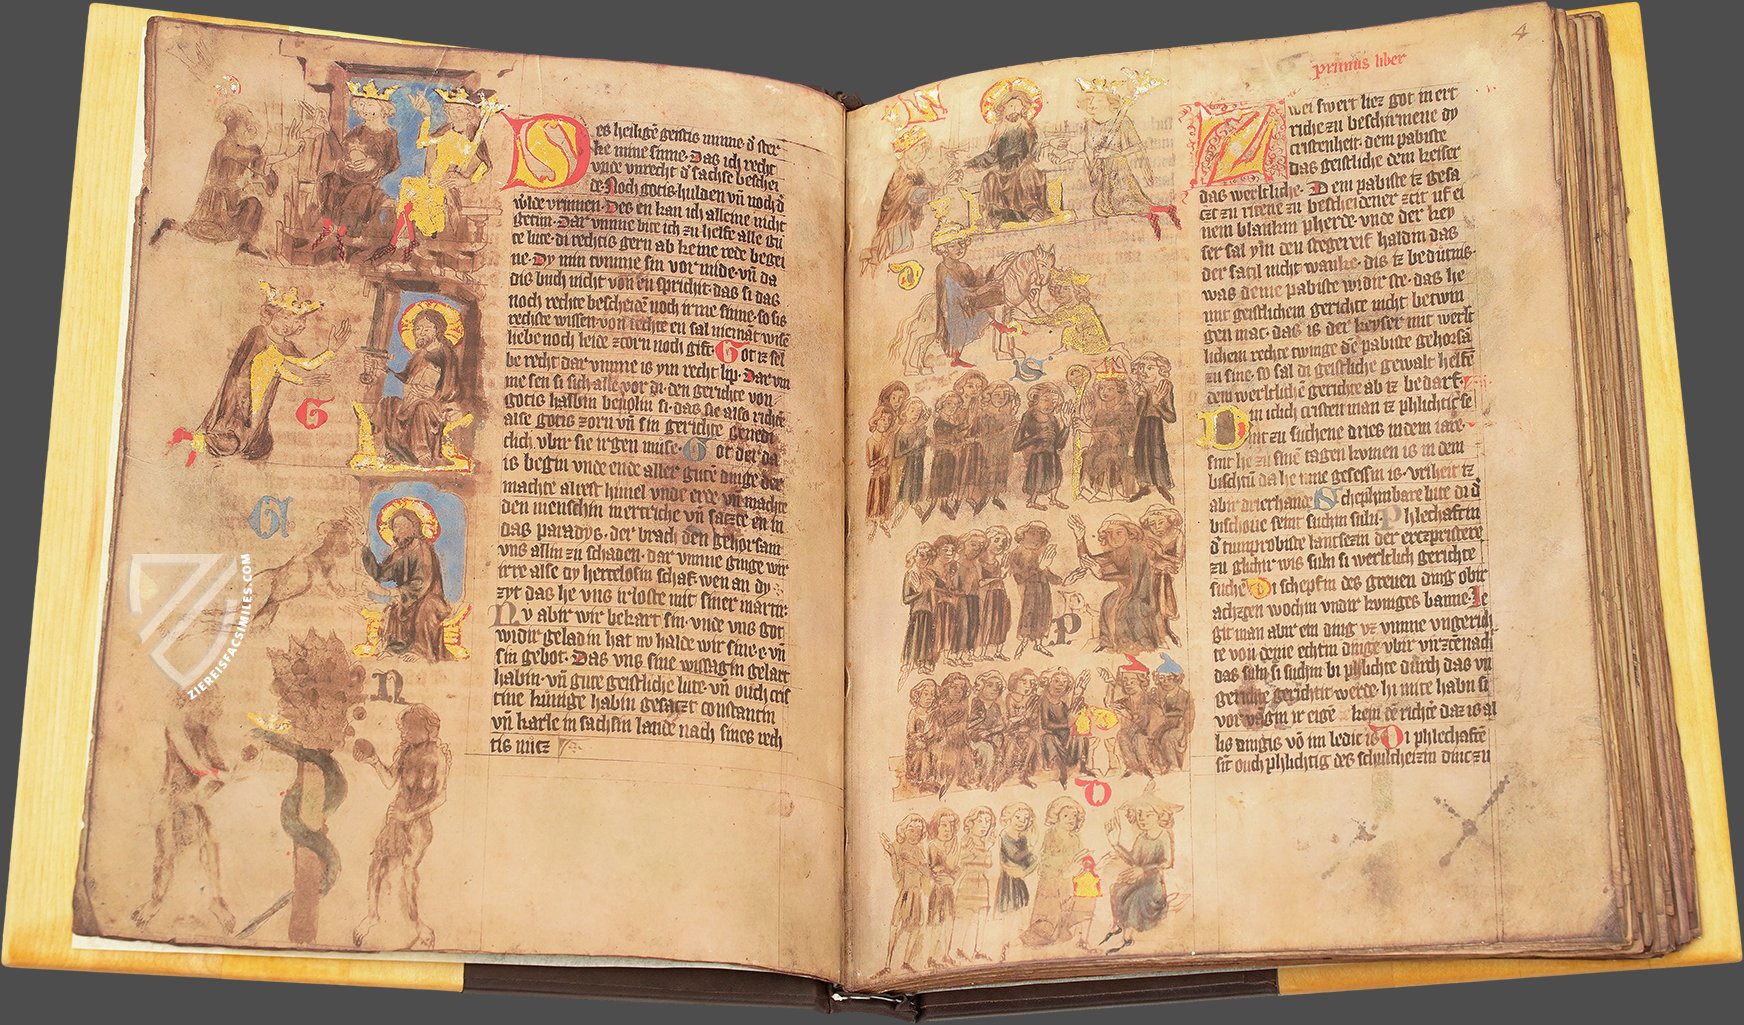 es heiligē geistis minne d̄ ster
ke mine sinne· Das ich recht
vnde vnrecht d̄ sachse beschei
de Noch gotis hulden vn̄ noch d̄
w̄lde vrumen· Des en kan ich alleine nicht
getun· Dar vmme bite ich zu helfe alle gu
te lute· di rechtis gern ab keine rede begei
ne· dy min tumme sin vor mide· vn̄ da
dis buch nicht von en spricht· das si das
noch rechte bescheidē noch irme sinne· so sis
rechte wissen· von rechte en sal niemāt wisē
liebe noch leide zorn noch gift· Got iz sel
be recht dar vmme is ym recht lip· Dar vm
me sen si sich alle vor· di den gerichte von
gotis halbin beuolin si· das sie also richtē
alse gotis zorn vn̄ sin gerichte genedi
clich vbir sie irgen muse· Got der da
is begin vnde ende aller gutē dinge der
machte alrest himel vnde erde vn̄ machte
den menschin mertriche vn̄ saczte en in
das paradys· der brach den gehorsam
vns allin zu schaden· dar vmme ginge wir
irre alse dy hertelosin schaf· wen an dy
zyt das he vns irloste mit siner martir·
Nv abir wir bekart sin· vnde vns got
widir geladin hat nv halde wir sine e vn̄
sin gebot· Das vns sine wissagin gelart
habin· vn̄ gute geistliche lute· vn̄ ouch cris
tine kunige habin gesaczt constantin
vn̄ karle in sachsin lande nach sines rech
tis
G
G
N
ZIEREISFACSIMILES.COM
4
primus liber
Zwei swert liez got in ert
riche zu beschirmene dy
cristenheit· dem pabiste
das geistliche dem keiser
das werltliche· Dem pabiste iz gesa
czt zu ritene zu bescheidener zcit uf ei
nem blankin pherde· vnde der key
ser sal ym den stegereif haldin das
der satil nicht wanke· dis iz bedutnis·
was deme pabiste widir ste· das he
mit geistlichem gerichte nicht betwin
gen mac· das is der keyser mit werlt
lichem rechte twinge dē pabiste gehorsā
zu sine· so sal di geistliche gewalt helfē
dem werltliche gerichte ab iz bedarf·
Din iclich cristen man iz phlichtic se
nit zu suchene dries in dem iare·
sint he zu sinē tagen kvmen is in dem
bischtū da he inne gesessin is· vriheit iz
abir drierhande Schephinbare lute di d̄
bischoue seint suchin suln· Phlechaftin
d̄ tumprobiste lantsezin der erczpristere
zu glichir wis suln si werltlich gerichte
suchē Di schepfin des greuen ding obir
achzzen wochin vndir kuniges banne· Le
git man abir ein ding vz vmme vngerich
te von deme echtin dinge vbir virzcēnach
das suln si suchin bi phlichte durch das vn
gerichte gerichtit werde· hi mite habin si
vor vagin ir eigē kein sē richtē daz is al
lis dingis vō im ledic is Di phlechaftē
sīt ouch phlichtig des schulcheizin dinc zu
A
S
P
D